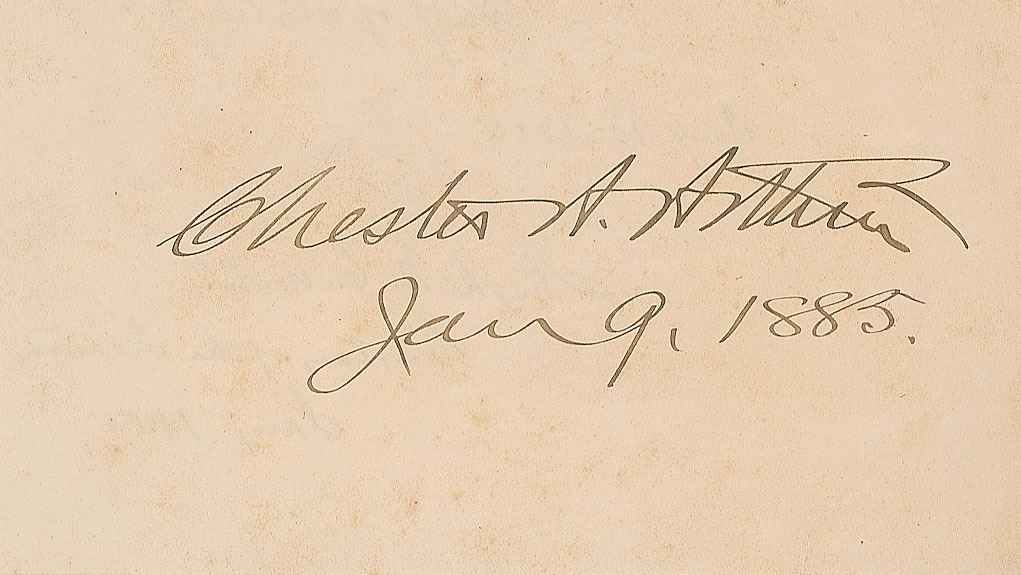 Chester A. Arthur
Jan 9, 1885.